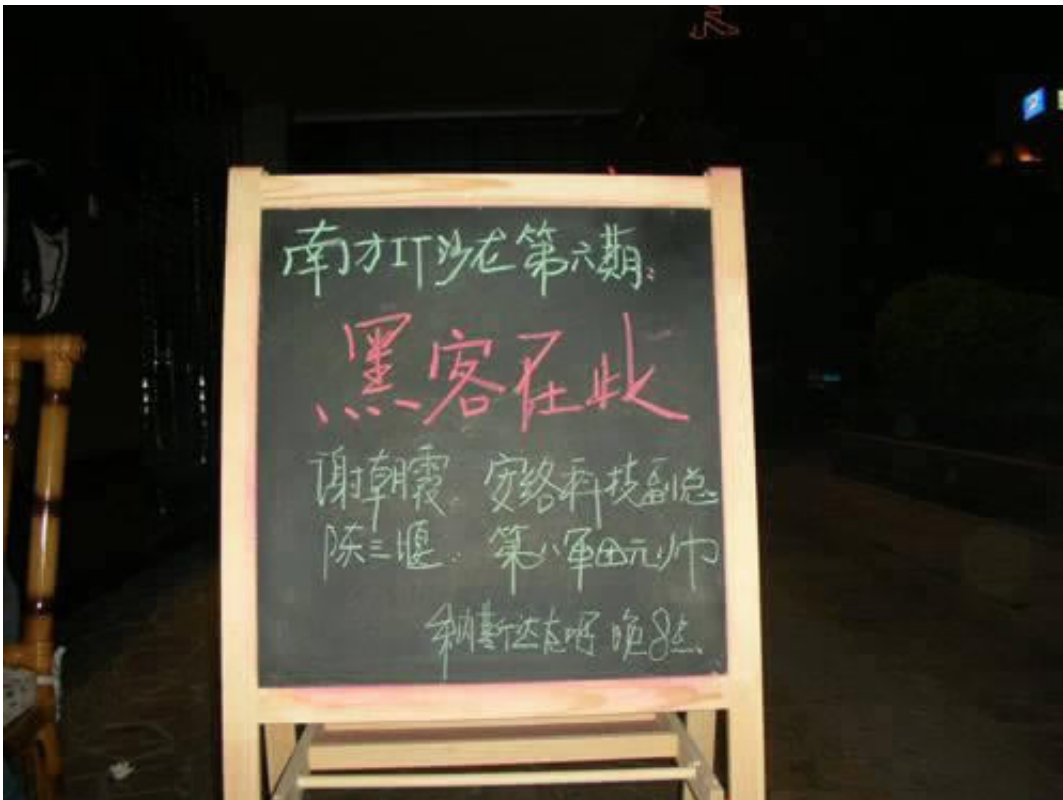 南方IT沙龙第六期:
黑客在此
谢朝霞: 安络科技副总
陈三堰: 第八军团元帅
晚8点